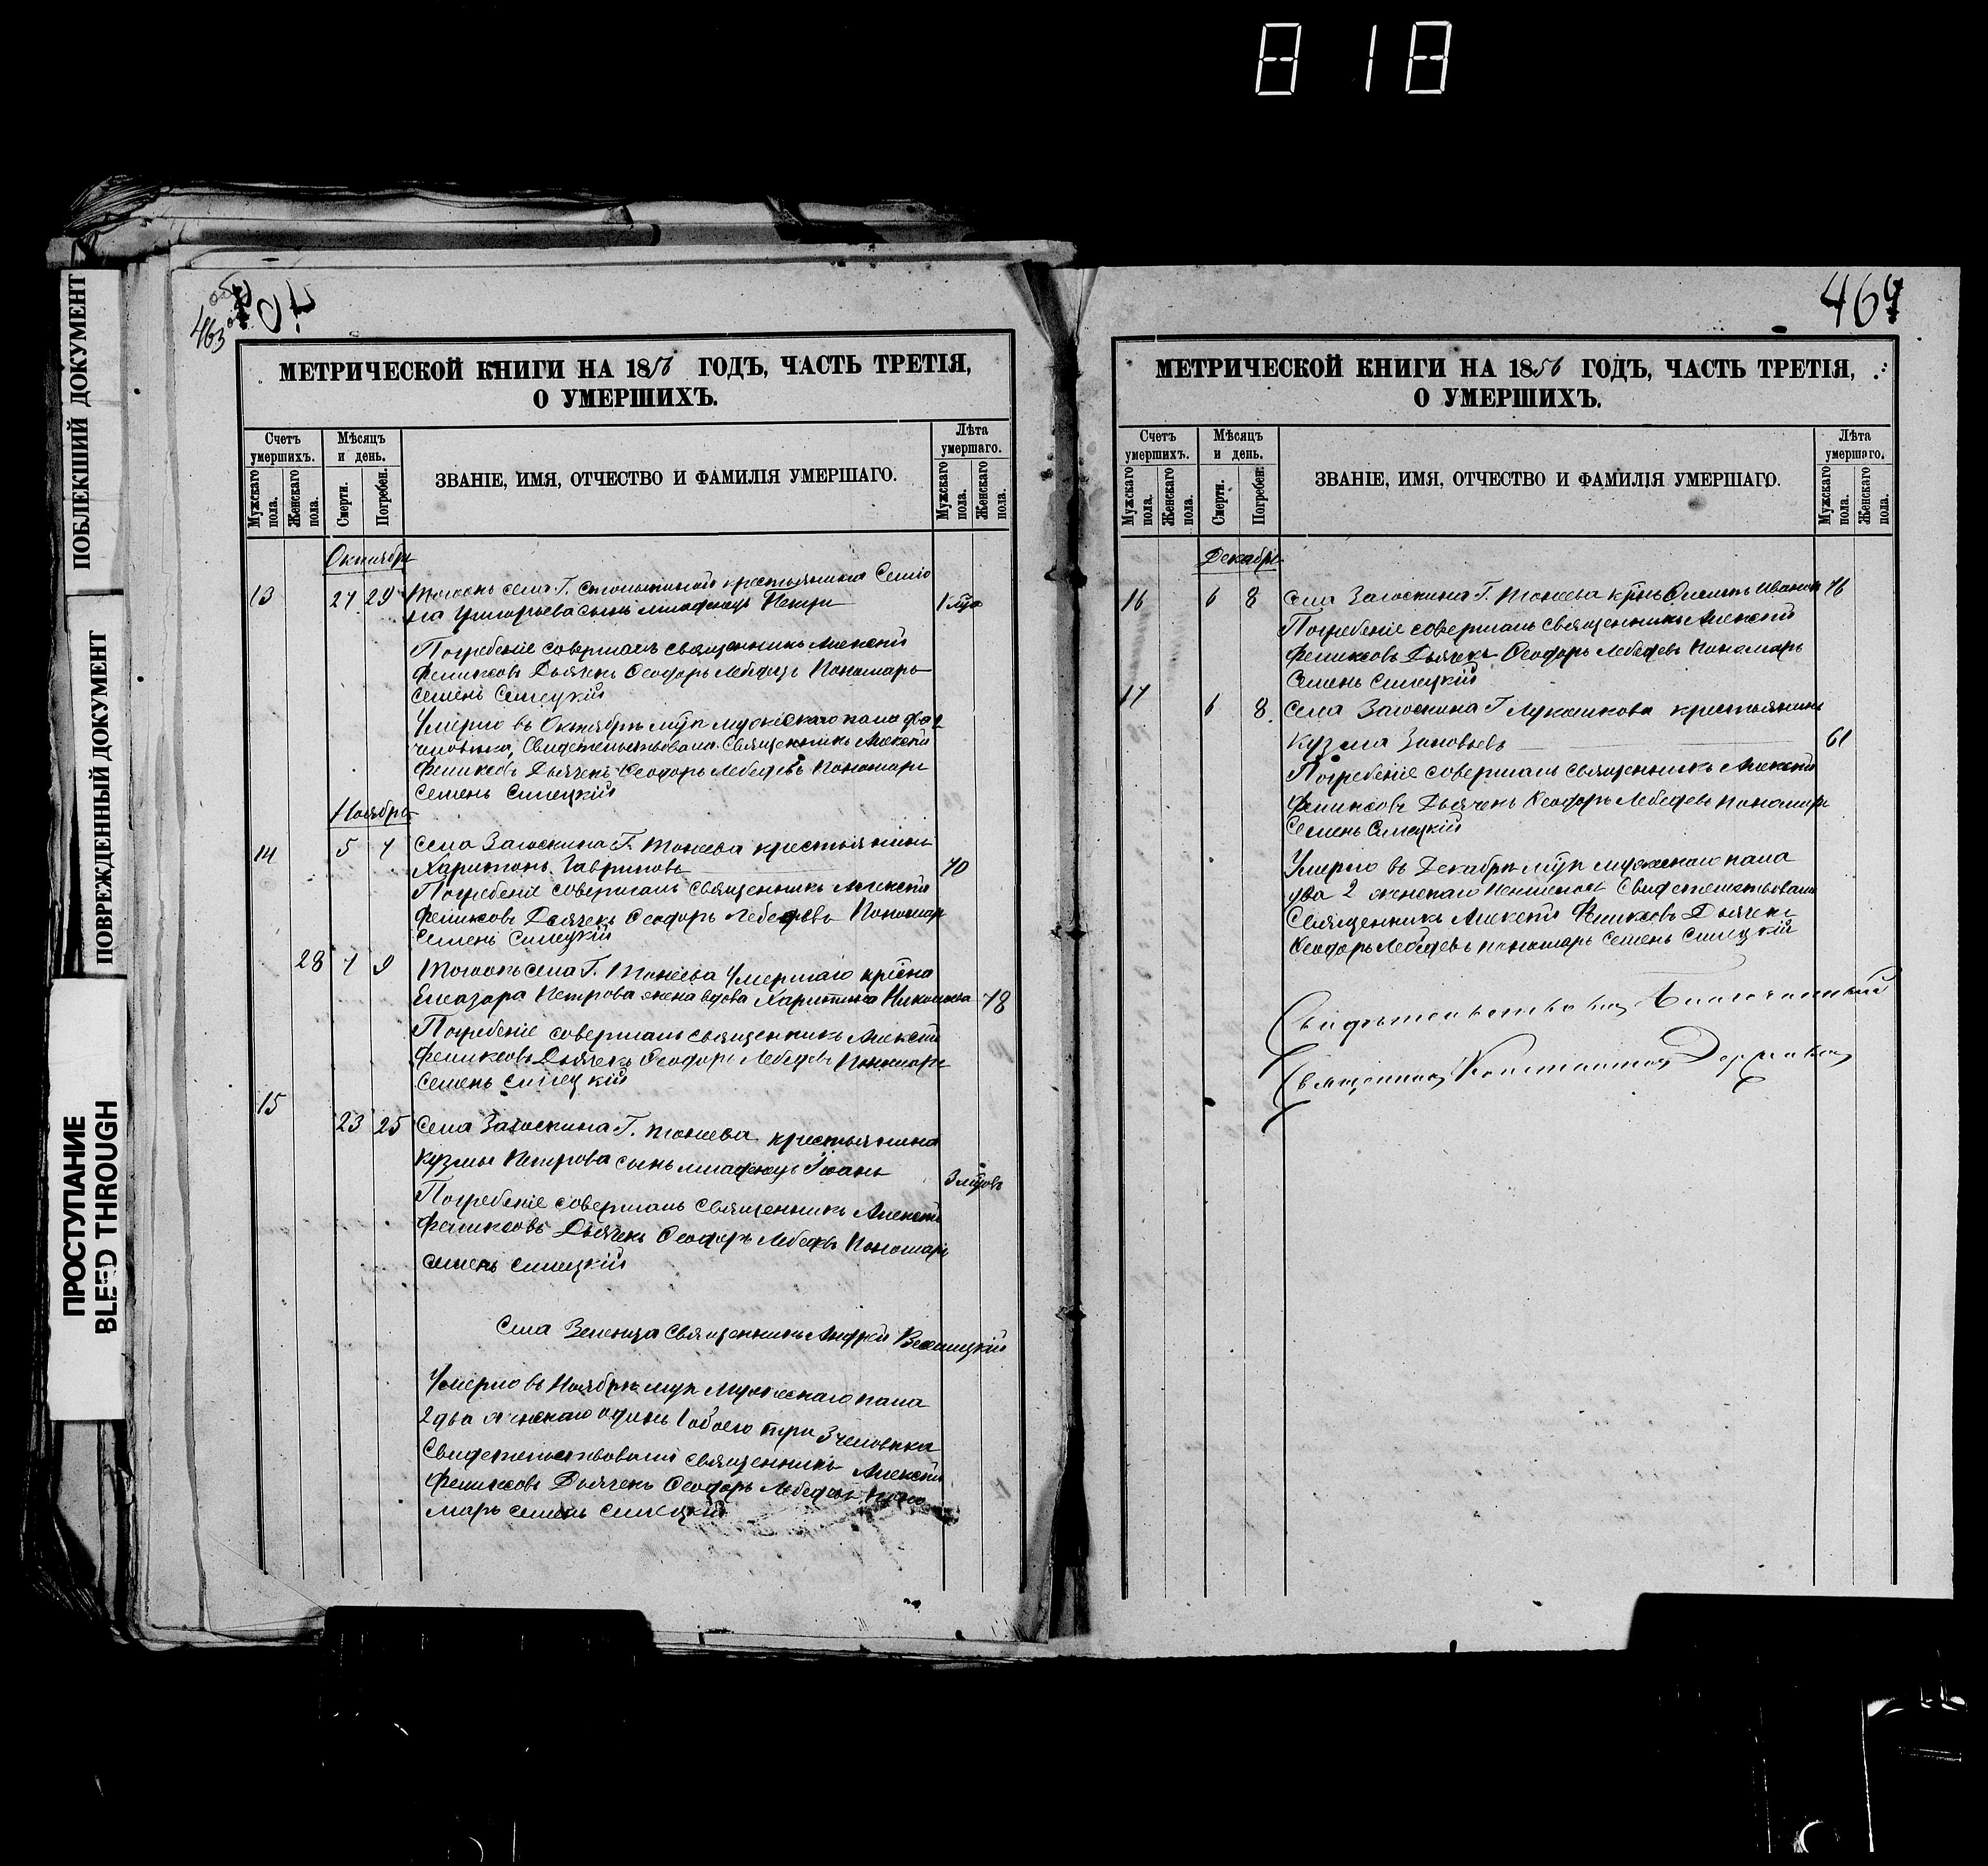 818
ПОБЛЕКШИЙ ДОКУМЕНТ
ПОВРЕЖДЕННЫЙ ДОКУМЕНТ
ПРОСТУПАНИЕ
BLEED THROUGH
463 об
МЕТРИЧЕСКОЙ КНИГИ НА 1856 ГОДЪ, ЧАСТЬ ТРЕТІЯ,
О УМЕРШИХЪ.
Счетъ умершихъ.
Мужскаго пола.
Женскаго пола.
Мѣсяцъ и день.
Смерти.
Погребен.
ЗВАНІЕ, ИМЯ, ОТЧЕСТВО И ФАМИЛІЯ УМЕРШАГО.
Лѣта умершаго.
Мужскаго пола.
Женскаго пола.
Октябрь
13 27 29 Тогожъ села Г. крестьянина Семіо
на Григорьева сынъ младенецъ Петръ 1 года
Погребеніе совершалъ священникъ Алексѣй
Феликсовъ Дьячекъ Ѳеодоръ Лебедевъ Пономарь
Семенъ Силецкій
Умерло въ Октябрѣ мѣц мужескаго пола два 2
человѣка, Свидетельствовали Священникъ Алексѣй
Феликсовъ Дьячекъ Ѳеодоръ Лебедевъ Пономарь
Семенъ Силецкій
Ноябрь
14 5 7 Села Загоскина Г. Тонеева крестьянинъ
Харитонъ Гавриловъ 70
Погребеніе совершалъ священникъ Алексѣй
Феликсовъ Дьячекъ Ѳеодоръ Лебедевъ Пономарь
Семенъ Силецкій
28 7 9 Тогожъ села Г. Тонеева Умершаго крѣсна
Елеазара Петрова жена вдова Харитина Николаева 78
Погребеніе совершалъ священникъ Алексѣй
Феликсовъ Дьячекъ Ѳеодоръ Лебедевъ Пономарь
Семенъ Силецкій
15 23 25 Села Загоскина Г. Тонеева крестьянина
Кузмы Петрова сынъ младенецъ Іоанъ 3 годовъ
Погребеніе совершалъ священникъ Алексѣй
Феликсовъ Дьячекъ Ѳеодоръ Лебедевъ Пономарь
Семенъ Силецкій
Села священникъ Андрей
Умерло въ Ноябрѣ мѣц Мужескаго пола
2 два женскаго одинъ 1 обоего три 3 человѣка
Свидетельствовали священникъ Алексѣй
Феликсовъ Дьячекъ Ѳеодоръ Лебедевъ Поно
марь Семенъ Силецкій
464
МЕТРИЧЕСКОЙ КНИГИ НА 1856 ГОДЪ, ЧАСТЬ ТРЕТІЯ,
О УМЕРШИХЪ.
Счетъ умершихъ.
Мужскаго пола.
Женскаго пола.
Мѣсяцъ и день.
Смерти.
Погребен.
ЗВАНІЕ, ИМЯ, ОТЧЕСТВО И ФАМИЛІЯ УМЕРШАГО.
Лѣта умершаго.
Мужскаго пола.
Женскаго пола.
Декабрь
16 6 8 Села Загоскина Г. Тонеева крнъ Ивановъ 76
Погребеніе совершалъ священникъ Алексѣй
Феликсовъ Дьячекъ Ѳеодоръ Лебедевъ Пономарь
Семенъ Силецкій
17 6 8 Села Загоскина Г Лукашкова крестьянинъ
Кузма Зиновьевъ 61
Погребеніе совершалъ священникъ Алексѣй
Феликсовъ Дьячекъ Ѳеодоръ Лебедевъ Пономарь
Семенъ Силецкій
Умерло въ Декабрѣ мѣц мужескаго пола
два 2 женскаго Свидетельствовали
Священникъ Алексѣй Феликсовъ Дьячекъ
Ѳеодоръ Лебедевъ пономарь Семенъ Силецкій
Свидѣтельствовалъ Благочинный
Священникъ Константинъ